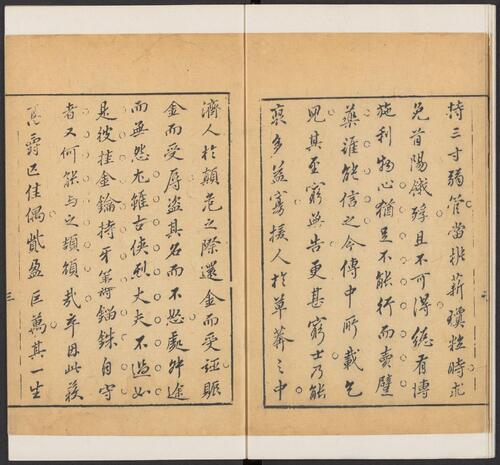 持三寸弱管當桂薪瓊粒時求
免首陽餓殍且不可得總有博
施利物心猶且不能行而賣璧
藥誰能信之今傳中所載乞
兒其至窮無告更甚窮士乃能
裒多益寡援人於草莽之中
濟人於顛危之際還金而受誣賑
金而受辱盜其名而不怒處途
而無怨尤雖古俠烈丈夫不過如
是彼挂金錀持牙籌錙銖自守
者又何能与之頡頏哉卒因此獲
爵匹佳偶貲盈巨萬其一生
三